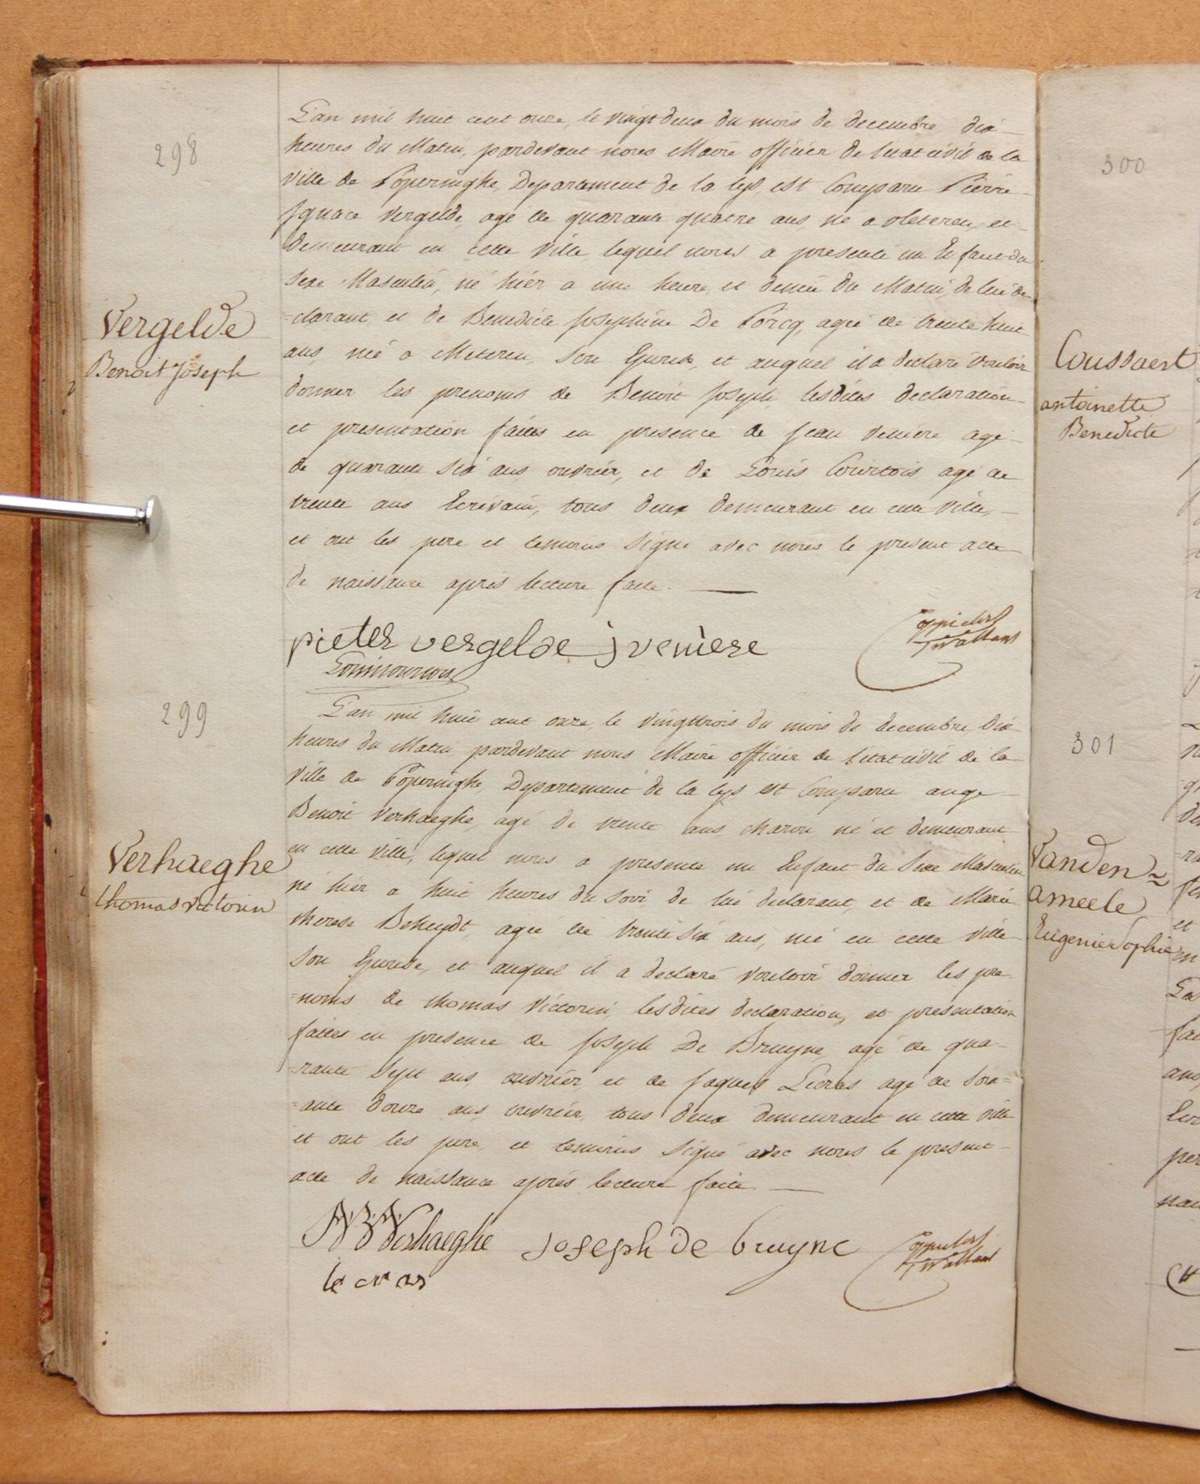 298
L'an mil huit cent onze, le vingt deux du mois de decembre dix
heures du Matin, pardevant nous Maire officier de l'etat civil de la
ville de Poperinghe, Departement de la Lys, est Comparu Pierre
Ignace Vergelde, agé de quarante quatre ans, né a vleteren, et
demeurant en cette ville lequel nous a presenté un Enfant du
sexe Masculin, né hier a une heure et demie du Matin, de lui de
=clarant, et de Benedicte Josephine De Porcq, agée de trente huit
ans, née a Meteren, son Epouse, et auquel il a declaré vouloir
donner les prenoms de Benoit Joseph lesdites declaration
et presentation faites en presence de Jean veniere agé
de quarante six ans ouvrier, et de Louis Courtois agé de
trente ans Ecrivain, tous deux demeurant en cette ville,
et ont les pere et temoins signé avec nous le present acte
de naissance après lecture faite.
Vergelde
Benoit Joseph
pieter vergelde j veniere
299
L'an mil huit cent onze le vingttrois du mois de decembre dix
heures du Matin pardevant nous Maire officier de l'etat civil de la
ville de Poperinghe, Departement de la Lys est Comparu ange
Benoit Verhaeghe agé de trente ans charon né et demeurant
en cette ville, lequel nous a presenté un Enfant du Sexe Masculin
né hier a huit heures du soir de lui declarant, et de Marie
therese Beheydt, agée de trente six ans, née en cette ville
son Epouse, et auquel il a declaré vouloir donner les pre
=noms de thomas Victorin, lesdites declaration, et presentation
faites en presence de Joseph De Bruyne, agé de qua-
=rante Sept ans ouvrier et de Jaques Lecras agé de soix=
=ante douze ans ouvrier, tous deux demeurant en cette ville
et ont les pere, et temoins signé avec nous le present
acte de naissance après lecture faite
Verhaeghe
thomas victorin
ABVerhaeghe joseph de bruyne
le cras
300
Coussaert
antoinette
Benedicte
301
Vanden=
ameele
Eugenie Sophie